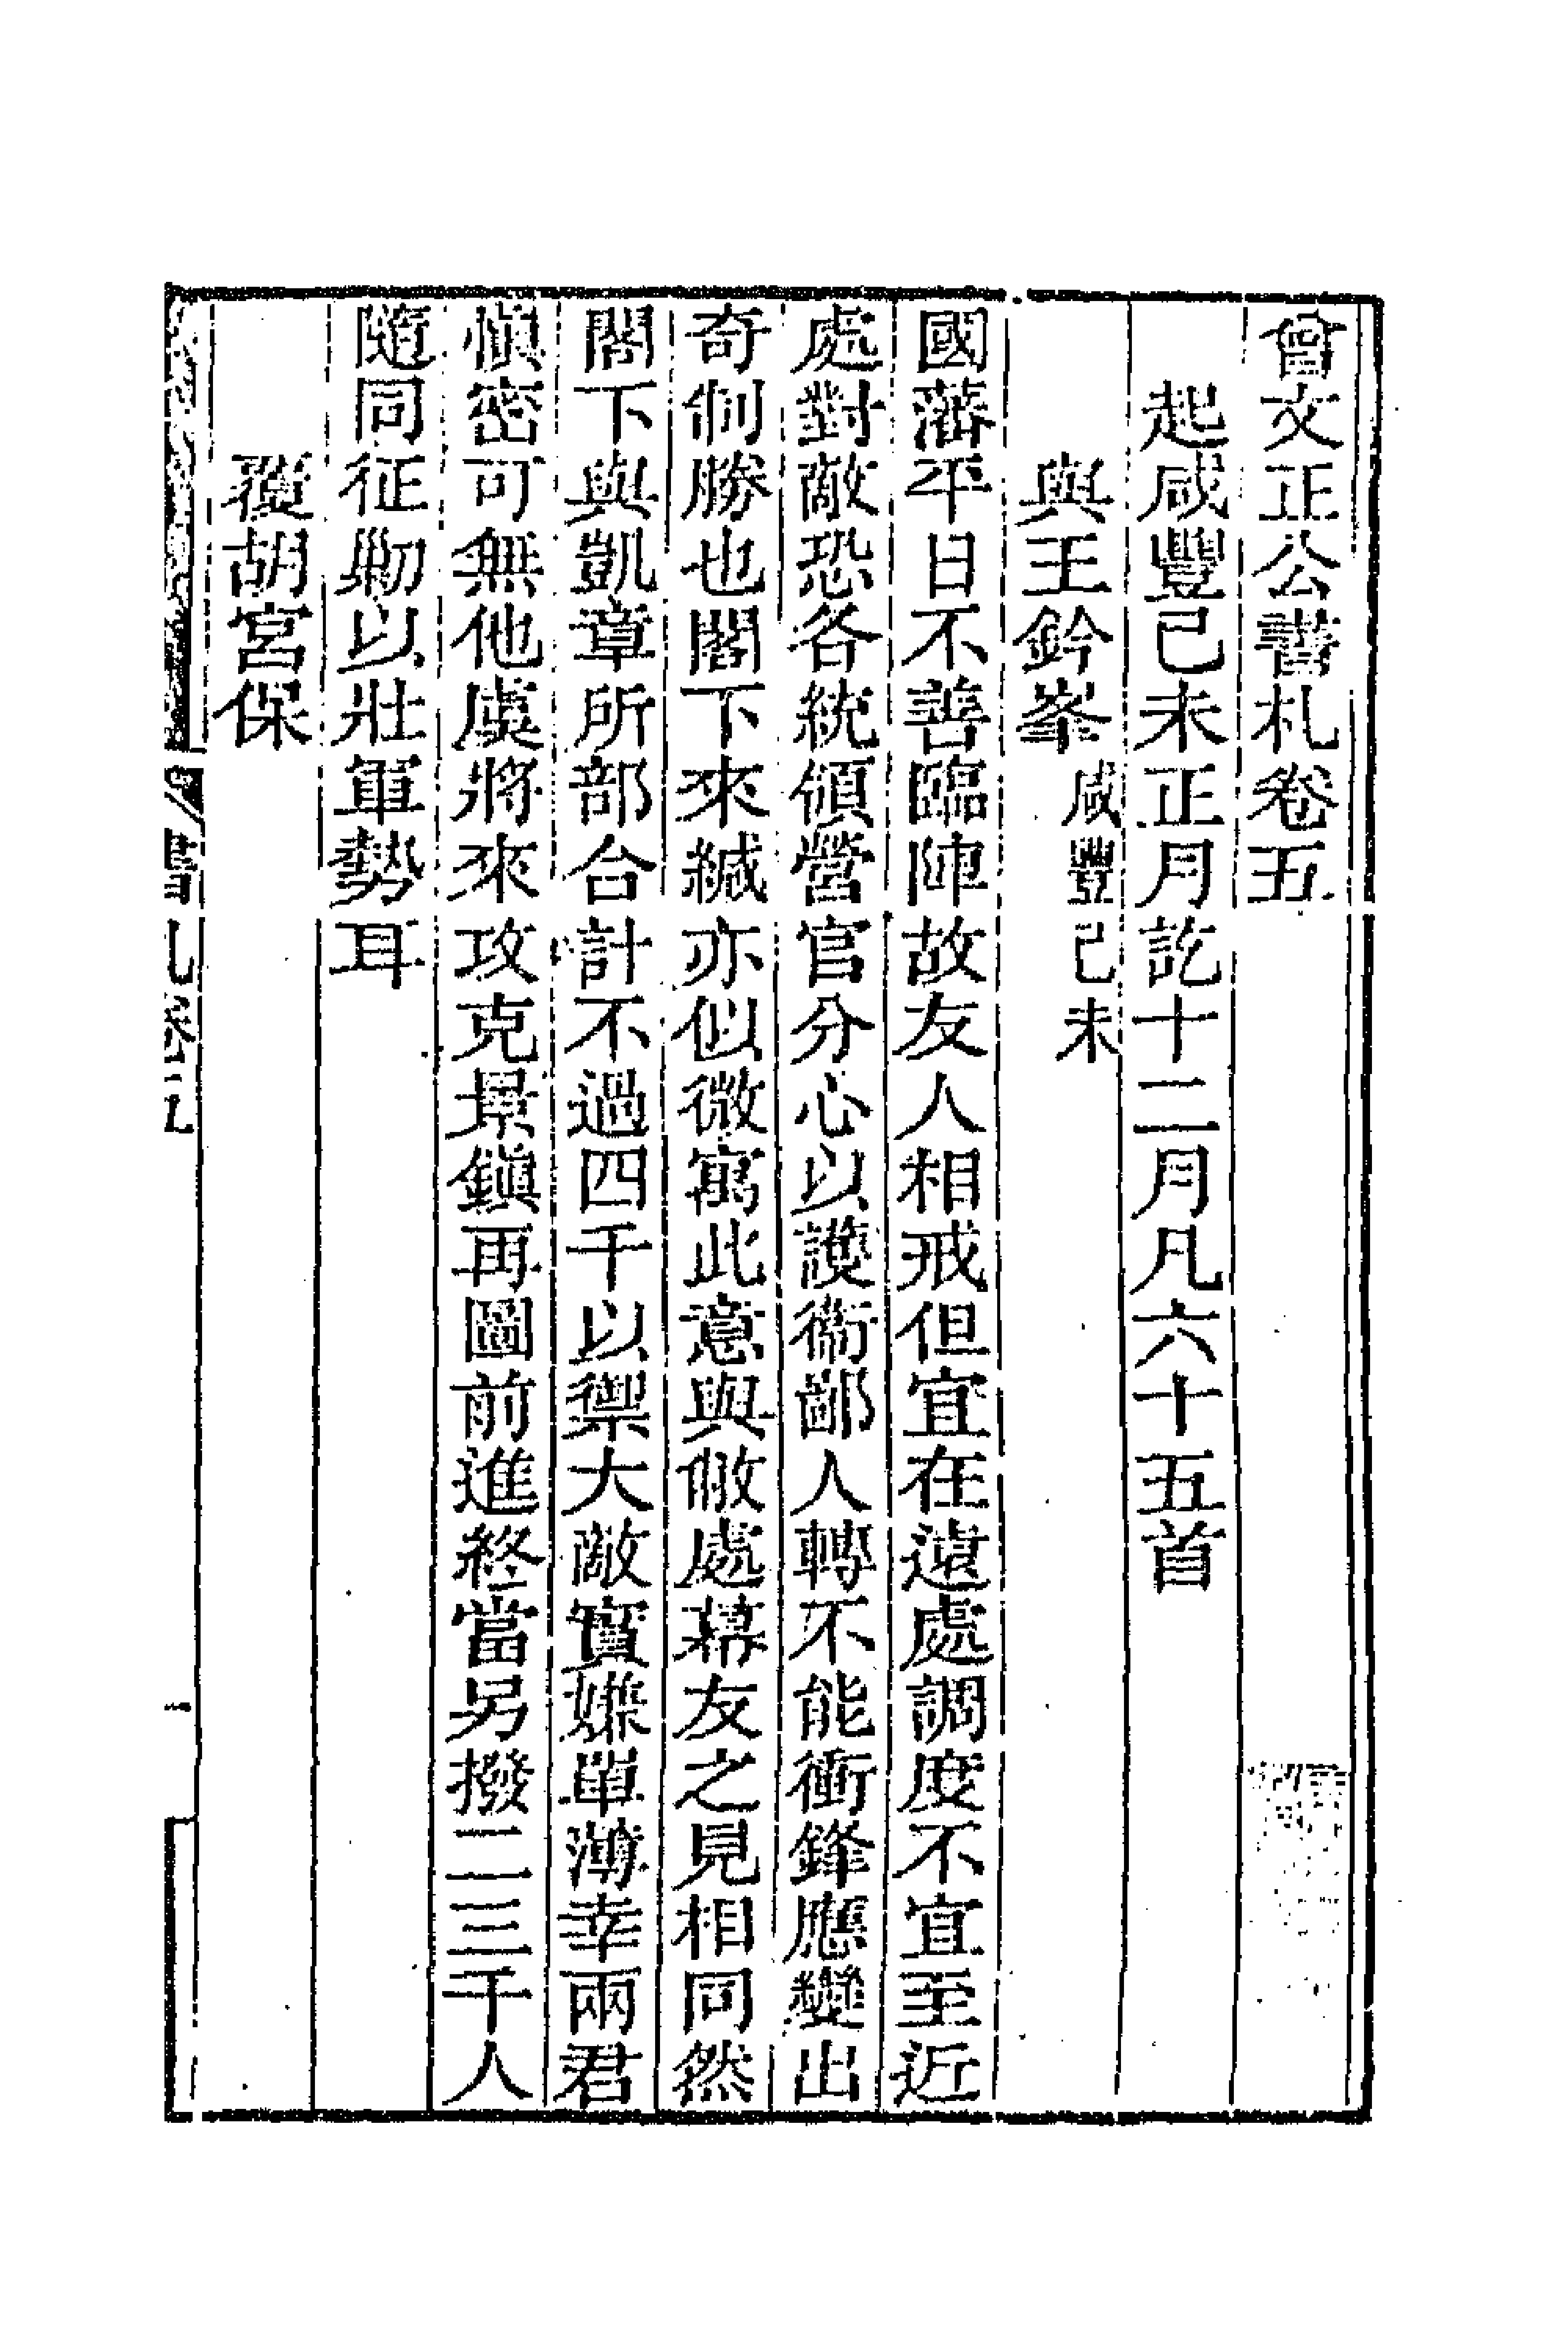 曾文正公書札卷五
起咸豐己未正月訖十二月凡六十五首
與王鈐峯 咸豐己未
國藩平日不善臨陣故友人相戒但宜在遠處調度不宜至近
處對敵恐各統領營官分心以護衞鄙人轉不能衝鋒應變出
奇制勝也閣下來緘亦似微寓此意與敝處幕友之見相同然
閣下與凱章所部合計不過四千以禦大敵實嫌單薄幸兩君
愼密可無他虞將來攻克景鎭再圖前進終當另撥二三千人
隨同征勦以壯軍勢耳
覆胡宮保
書札卷五
一